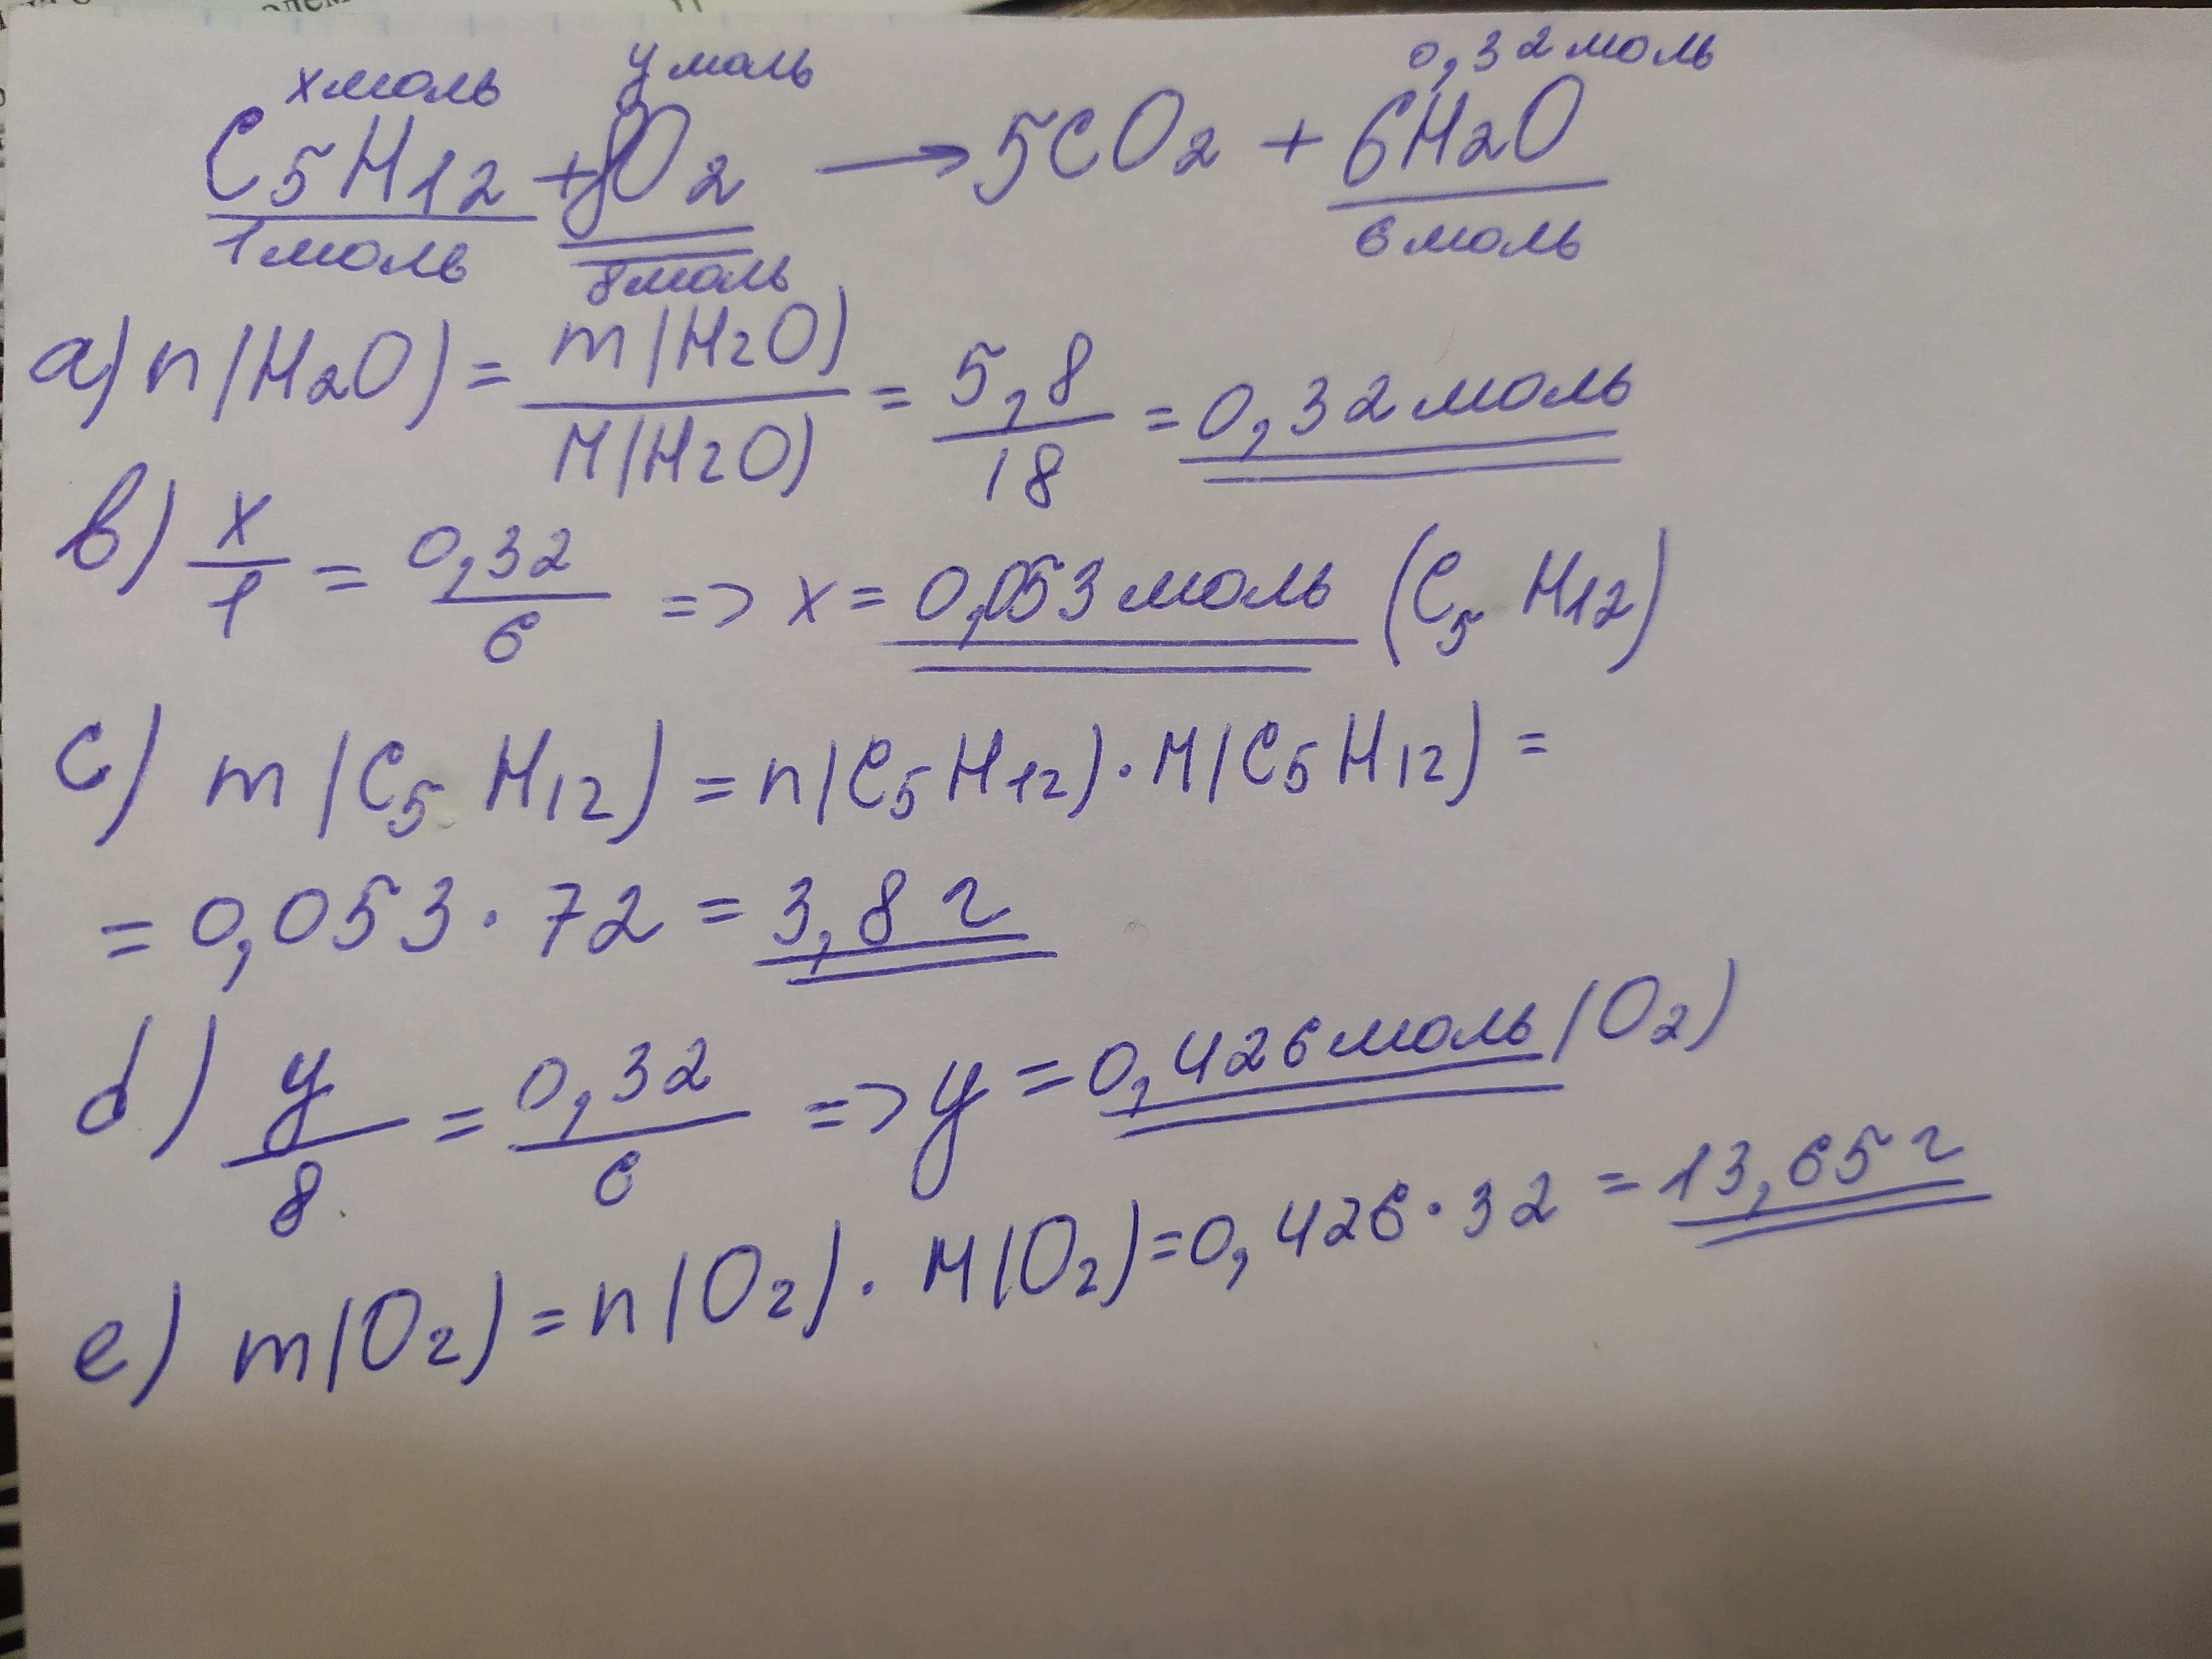 х моль у моль 0,32 моль
C5H12 + 8O2 → 5CO2 + 6H2O
1 моль 8 моль 6 моль
a) n(H2O) = m(H2O) / M(H2O) = 5,8 / 18 = 0,32 моль
b) x/1 = 0,32/6 => x = 0,053 моль (C5H12)
c) m(C5H12) = n(C5H12) · M(C5H12) =
= 0,053 · 72 = 3,8 г
d) y/8 = 0,32/6 => y = 0,426 моль (O2)
e) m(O2) = n(O2) · M(O2) = 0,426 · 32 = 13,65 г